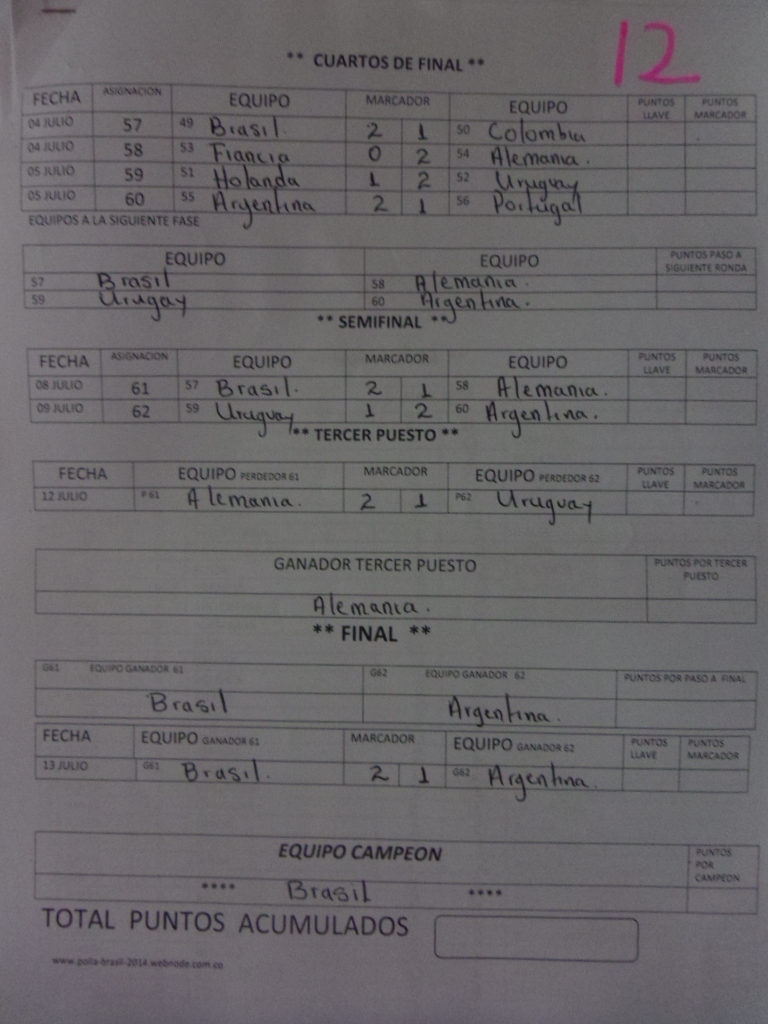 12
** CUARTOS DE FINAL **
FECHA ASIGNACION EQUIPO MARCADOR EQUIPO PUNTOS LLAVE PUNTOS MARCADOR
04 JULIO 57 49 Brasil. 2 1 50 Colombia
04 JULIO 58 53 Francia 0 2 54 Alemania.
05 JULIO 59 51 Holanda 1 2 52 Uruguay
05 JULIO 60 55 Argentina 2 1 56 Portugal
EQUIPOS A LA SIGUIENTE FASE
EQUIPO EQUIPO PUNTOS PASO A SIGUIENTE RONDA
57 Brasil 58 Alemania.
59 Urugay 60 Argentina.
** SEMIFINAL **
FECHA ASIGNACION EQUIPO MARCADOR EQUIPO PUNTOS LLAVE PUNTOS MARCADOR
08 JULIO 61 57 Brasil. 2 1 58 Alemania.
09 JULIO 62 59 Uruguay 1 2 60 Argentina.
** TERCER PUESTO **
FECHA EQUIPO PERDEDOR 61 MARCADOR EQUIPO PERDEDOR 62 PUNTOS LLAVE PUNTOS MARCADOR
12 JULIO P 61 Alemania. 2 1 P62 Uruguay
GANADOR TERCER PUESTO PUNTOS POR TERCER PUESTO
Alemania.
** FINAL **
G61 EQUIPO GANADOR 61 G62 EQUIPO GANADOR 62 PUNTOS POR PASO A FINAL
Brasil Argentina.
FECHA EQUIPO GANADOR 61 MARCADOR EQUIPO GANADOR 62 PUNTOS LLAVE PUNTOS MARCADOR
13 JULIO G61 Brasil. 2 1 G62 Argentina.
EQUIPO CAMPEON PUNTOS POR CAMPEON
**** Brasil ****
TOTAL PUNTOS ACUMULADOS
www.polla-brasil-2014.webnode.com.co